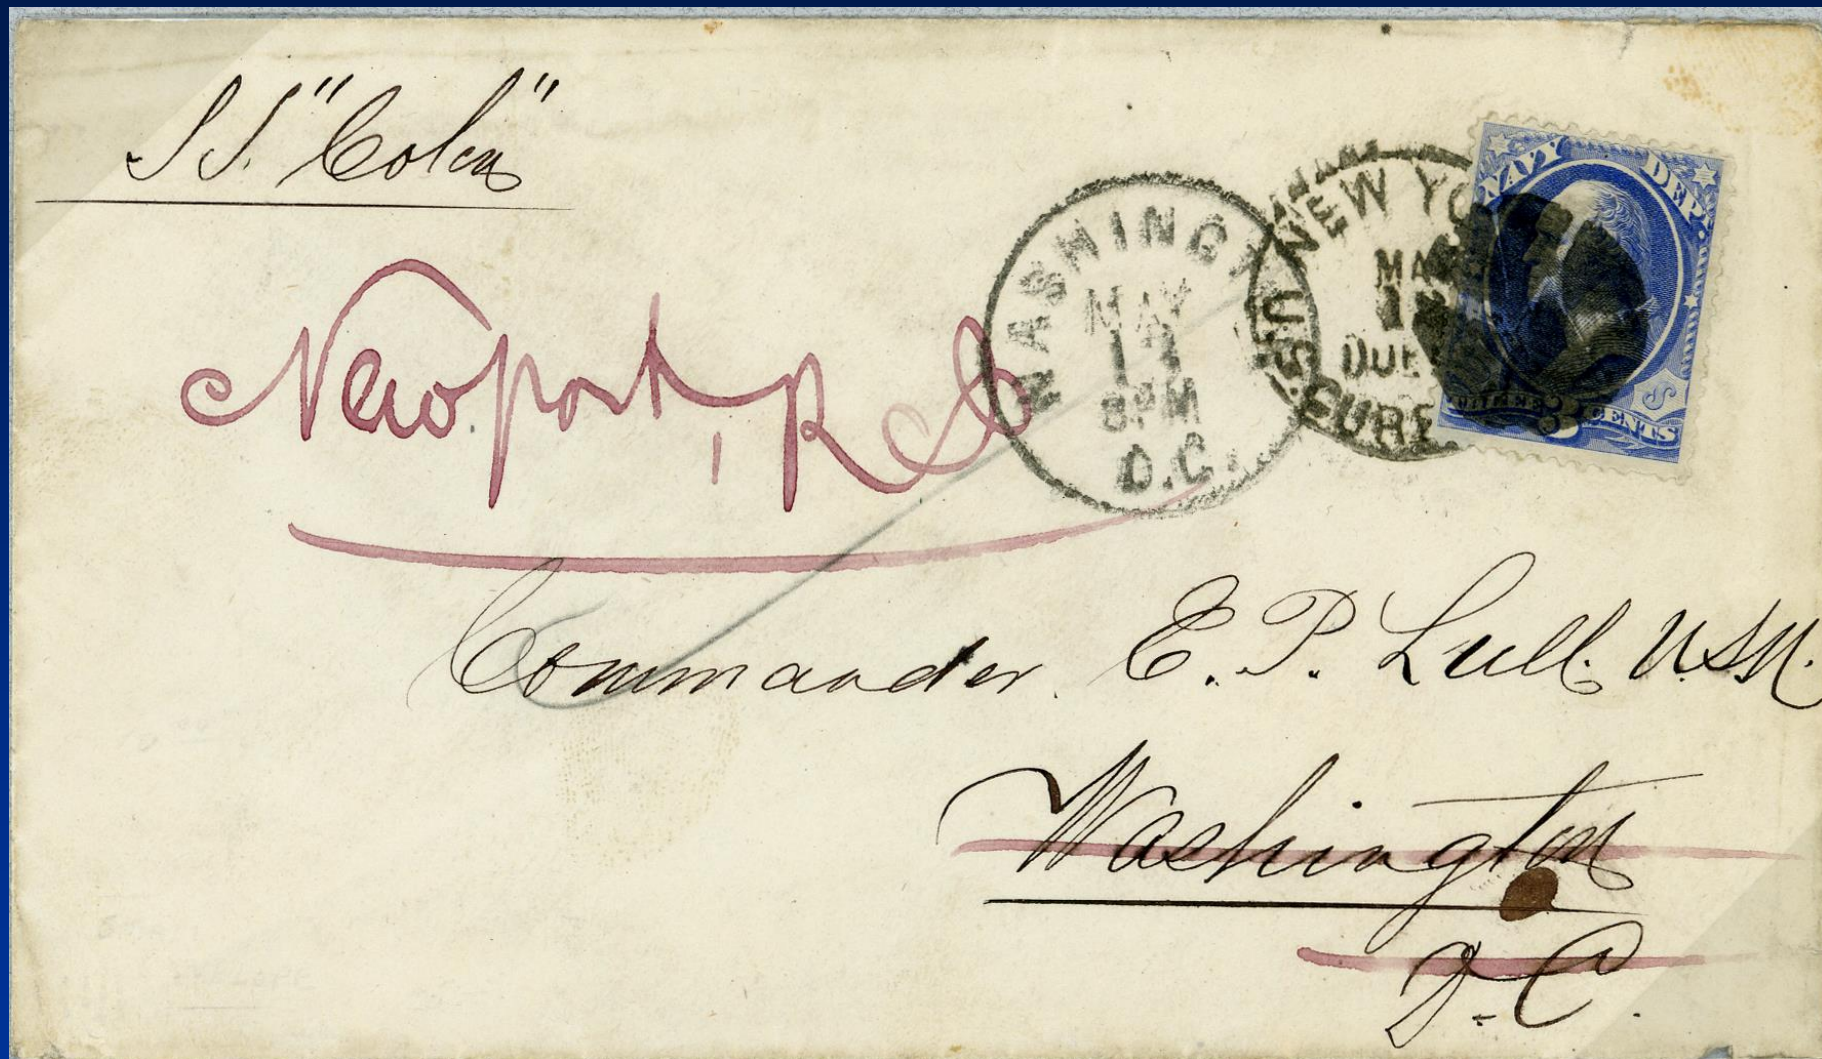 SS. "Colon"
Newport, R I
WASHINGT
MAY
8PM
D.C.
NEW YO
MA
DUE
U.S. CURR
NAVY DEPT.
CENTS
Commander E. P. Lull. U.S.N.
Washington
D. C.